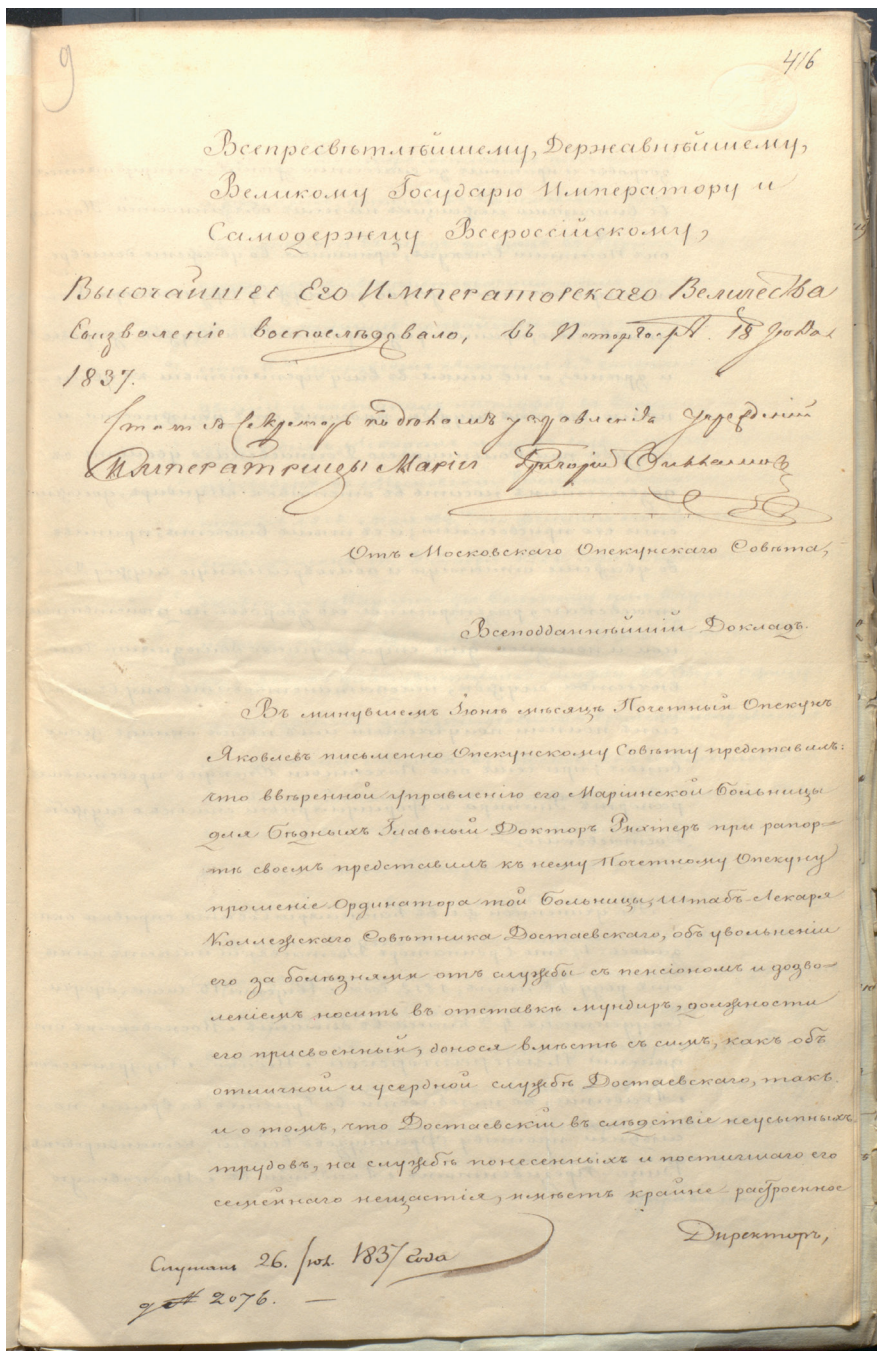 9
416
Всепресвѣтлѣйшему, Державнѣйшему,
Великому Государю Императору и
Самодержцу Всероссійскому,
Высочайшее Его Императорскаго Величества
соизволеніе воспослѣдовало, въ 18 Іюля
1837.
Статсъ Секретарь по дѣламъ управленія учрежденій
Императрицы Маріи Григорій Вилламовъ
Отъ Московскаго Опекунскаго Совѣта,
Всеподданнѣйшій Докладъ.
Въ минувшемъ Іюнѣ мѣсяцѣ Почетный Опекунъ
Яковлевъ письменно Опекунскому Совѣту представилъ:
что ввѣренной управленію его Маріинской Больницы
для бѣдныхъ Главный Докторъ Рихтеръ при рапор=
тѣ своемъ представилъ къ нему Почетному Опекуну
прошеніе Ординатора той Больницы, Штабъ-Лекаря
Коллежскаго Совѣтника Достаевскаго, объ увольненіи
его за болѣзнями отъ службы съ пенсіономъ и дозво=
леніемъ носить въ отставкѣ мундиръ, должности
его присвоенный, донося вмѣстѣ съ симъ, какъ объ
отличной и усердной службѣ Достаевскаго, такъ
и о томъ, что Достаевскій въ слѣдствіе неусыпныхъ
трудовъ, на службѣ понесенныхъ и постигшаго его
семейнаго нещастія, имѣетъ крайне растроенное
Директоръ,
Слушанъ 26. Іюл. 1837 года
№ 2076. —